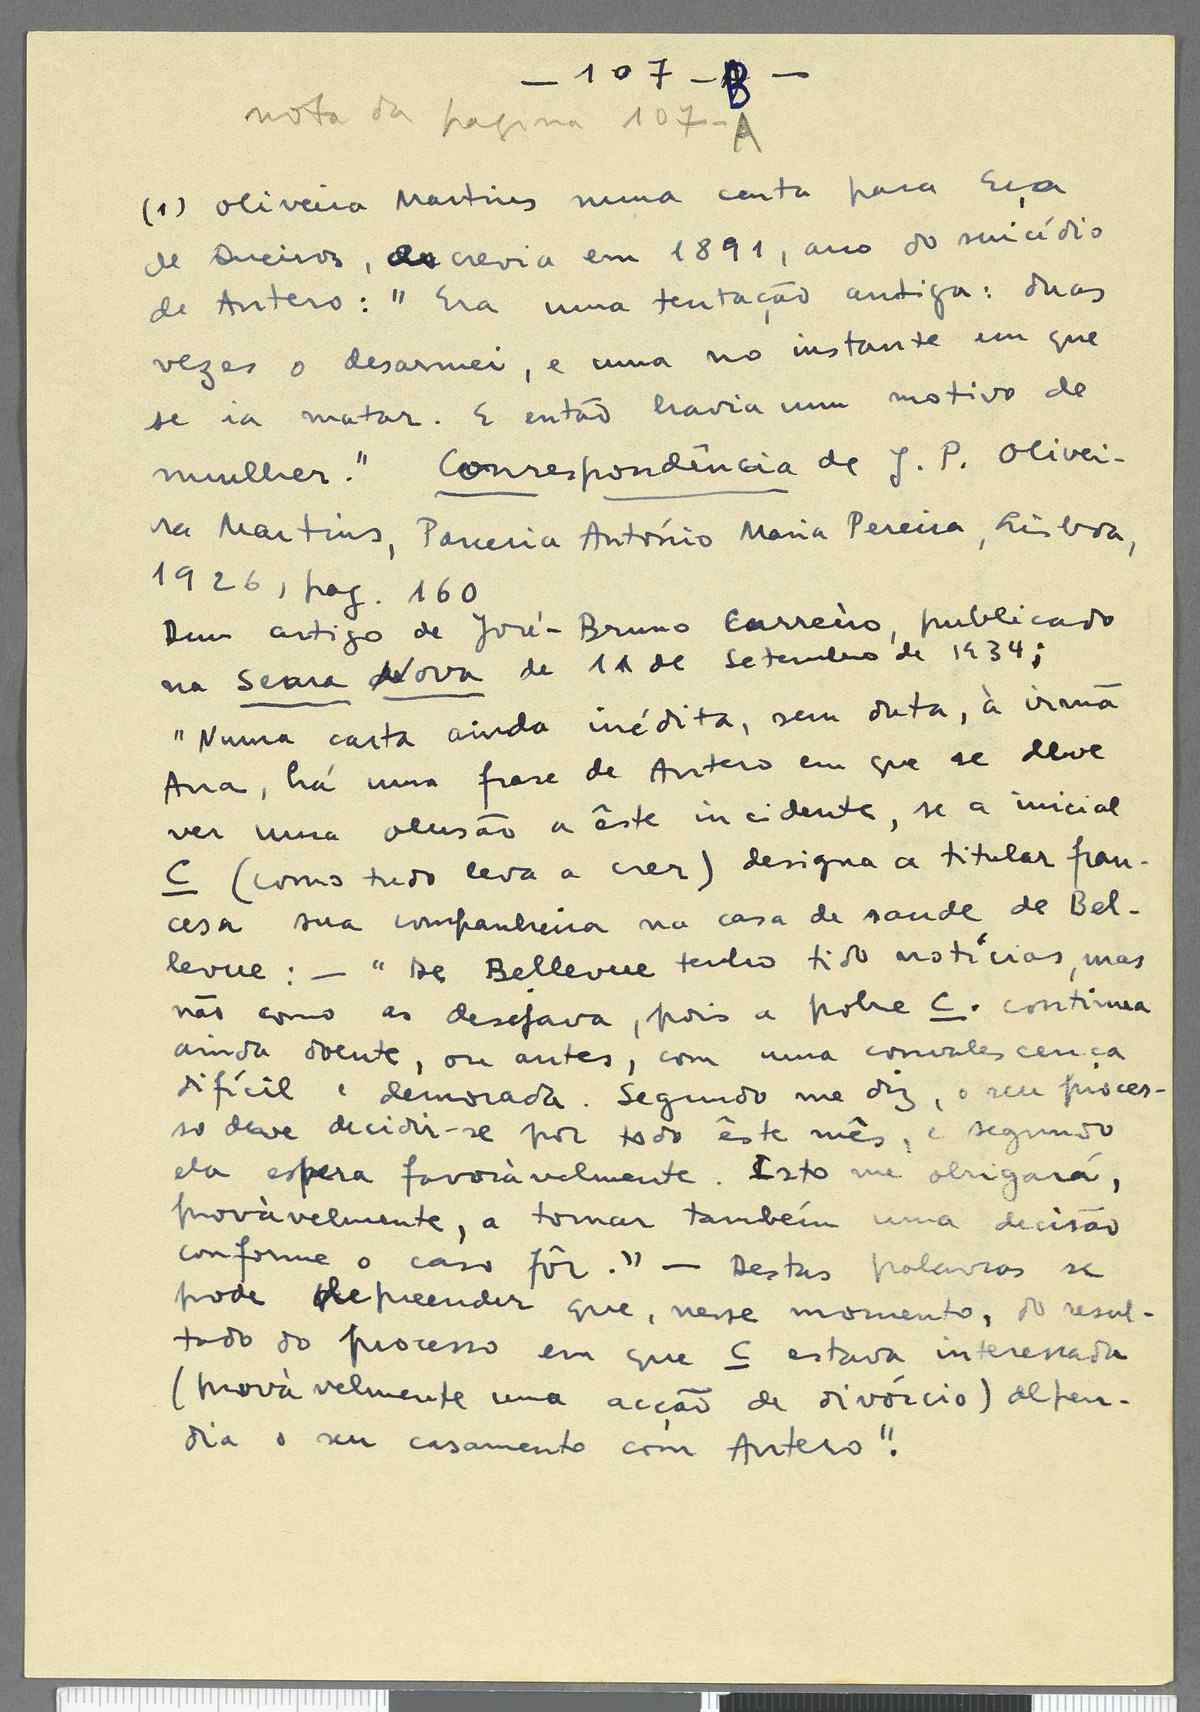 — 107 - B —
nota da pagina 107-A
(1) Oliveira Martins numa carta para Eça
de Queiros, escrevia em 1891, ano do suicídio
de Antero: " Era uma tentação antiga: duas
vezes o desarmei, e uma no instante em que
se ia matar. E então havia um motivo de
mulher." Correspondência de J. P. Olivei-
ra Martins, Parceria António Maria Pereira, Lisboa,
1926, pag. 160
Dum artigo de José-Bruno Carreiro, publicado
na Seara Nova de 11 de Setembro de 1934;
"Numa carta ainda inédita, sem data, à irmã
Ana, há uma frase de Antero em que se deve
ver uma alusão a êste incidente, se a inicial
C (como tudo leva a crer) designa a titular fran-
cesa sua companheira na casa de saude de Bel-
levue: — "De Bellevue tenho tido notícias, mas
não como as desejava, pois a pobre C. continua
ainda doente, ou antes, com uma convalescença
difícil e demorada. Segundo me diz, o seu proces-
so deve decidir-se por todo êste mês, e segundo
ela espera favoràvelmente. Isto me obrigará,
provàvelmente, a tomar também uma decisão
conforme o caso fôr." — Destas palavras se
pode depreender que, nesse momento, do resul-
tado do processo em que C estava interessada
(provàvelmente uma acção de divórcio) depen-
dia o seu casamento com Antero".